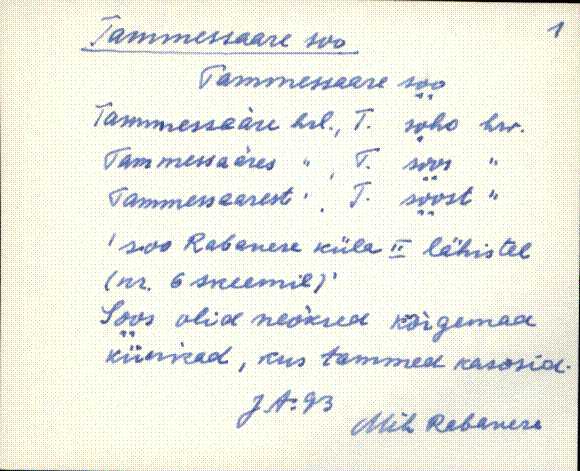 1
Tammessaare soo
Tammessaare soo
Tammessaare hrl., T. soho hrv.
Tammessaares " , T. soos "
Tammessaarest " , T. soost "
'soo Rabavere küla II lähistel
(nr. 6 skeemil)'
Soos olid neoksed kõrgemad
künkad, kus tammed kasosid.
Mih Rabavere